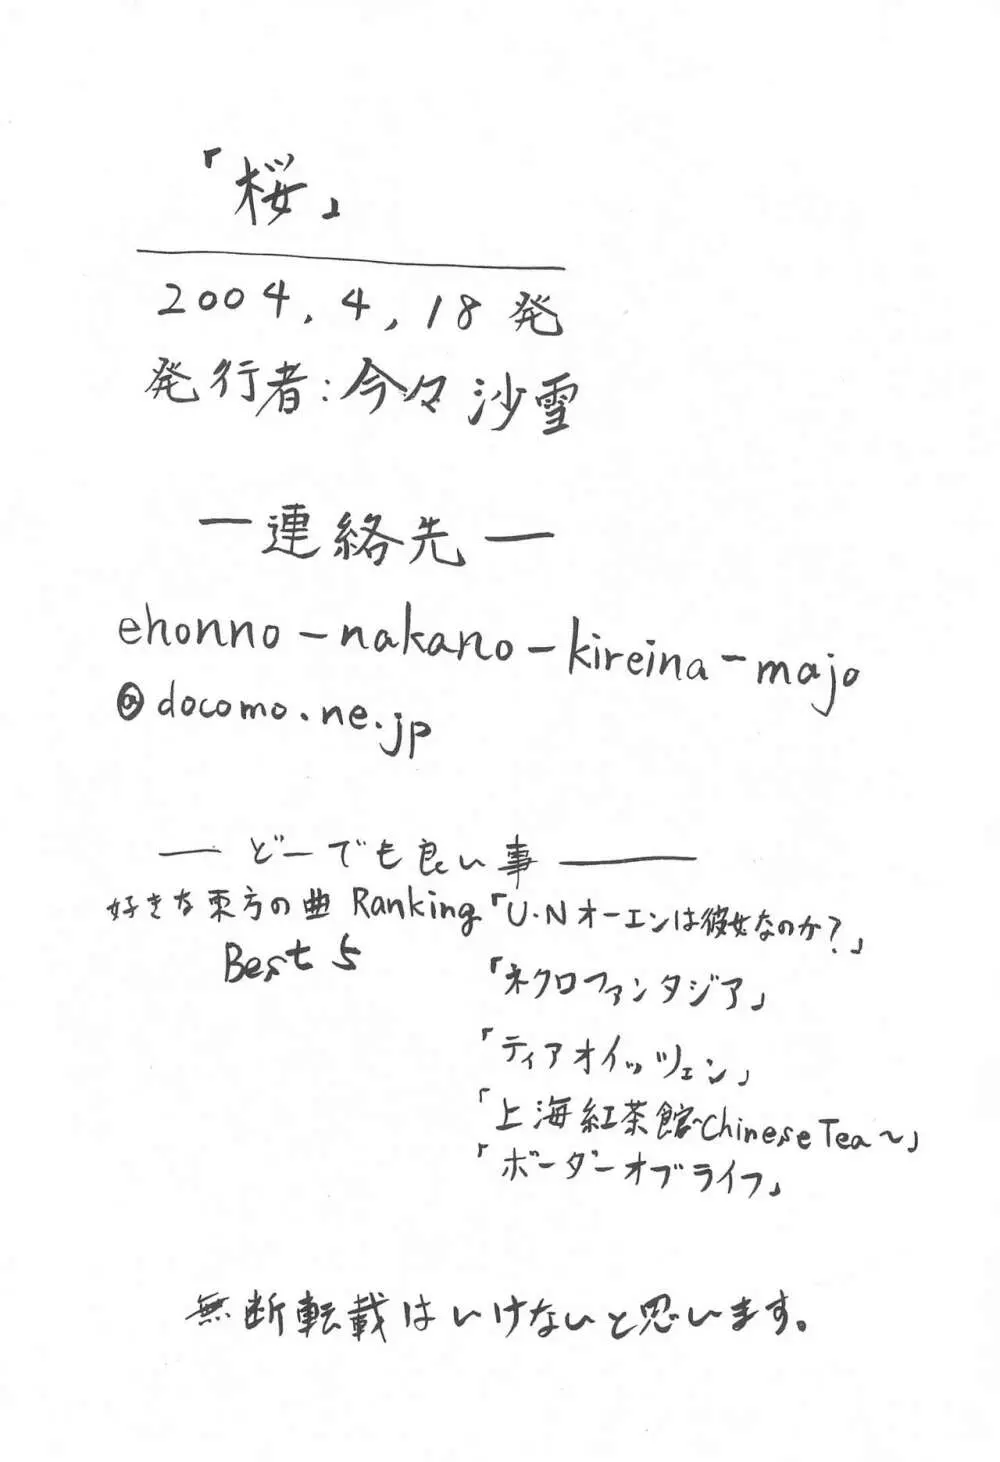 「桜」
2004, 4, 18 発
発行者:今々沙雪
ー連絡先ー
ehonno-nakano-kireina-majo
@docomo.ne.jp
── どーでも良い事 ──
好きな東方の曲 Ranking「U.Nオーエンは彼女なのか?」
Best 5
「ネクロファンタジア」
「ティアオイッツェン」
「上海紅茶館~Chinese Tea~」
「ボーダーオブライフ」
無断転載はいけないと思います。